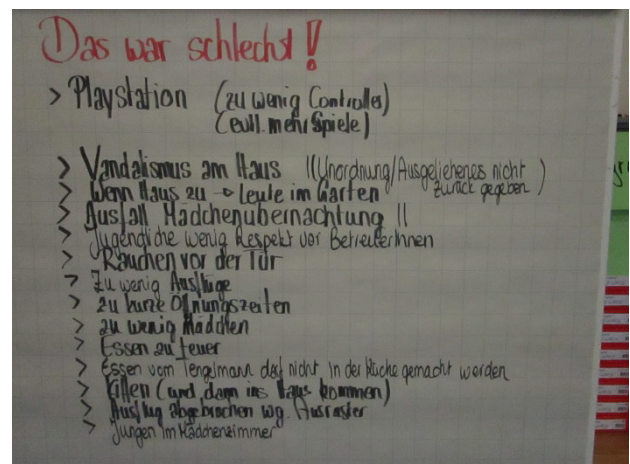 Das war schlecht!
> Playstation (zu wenig Controller)
(evtl. mehr Spiele)
> Vandalismus am Haus || (Unordnung/Ausgeliehenes nicht zurück gegeben)
> Wenn Haus zu → Leute im Garten
> Ausfall Mädchenübernachtung ||
> Jugendliche wenig Respekt vor BetreuerInnen
> Rauchen vor der Tür
> Zu wenig Ausflüge
> zu kurze Öffnungszeiten
> zu wenig Mädchen
> Essen zu teuer
> Essen vom Tengelmann darf nicht in der Küche gemacht werden
> Kiffen (und dann ins Haus kommen)
> Ausflug abgebrochen wg. Ausraster
> Jungen im Mädchenzimmer